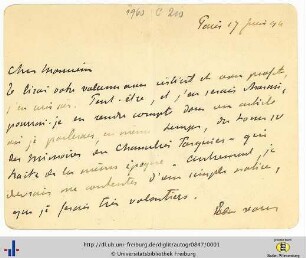 1960 C 200
Paris 17 juin 94
Cher Monsieur
Je lirai votre volume avec intérêt et avec profit,
j'en suis sûr. Peut-être, et j'en serais
pourrai-je en rendre compte dans un article
où je parlerais, en même temps, du tome IV
des mémoires du Chancelier Pasquier - qui
traite de la même époque - autrement, je
devrais me contenter d'une simple notice,
que je ferais très volontiers.
http://dl.ub.uni-freiburg.de/diglit/autogr0847/0001
© Universitätsbibliothek Freiburg